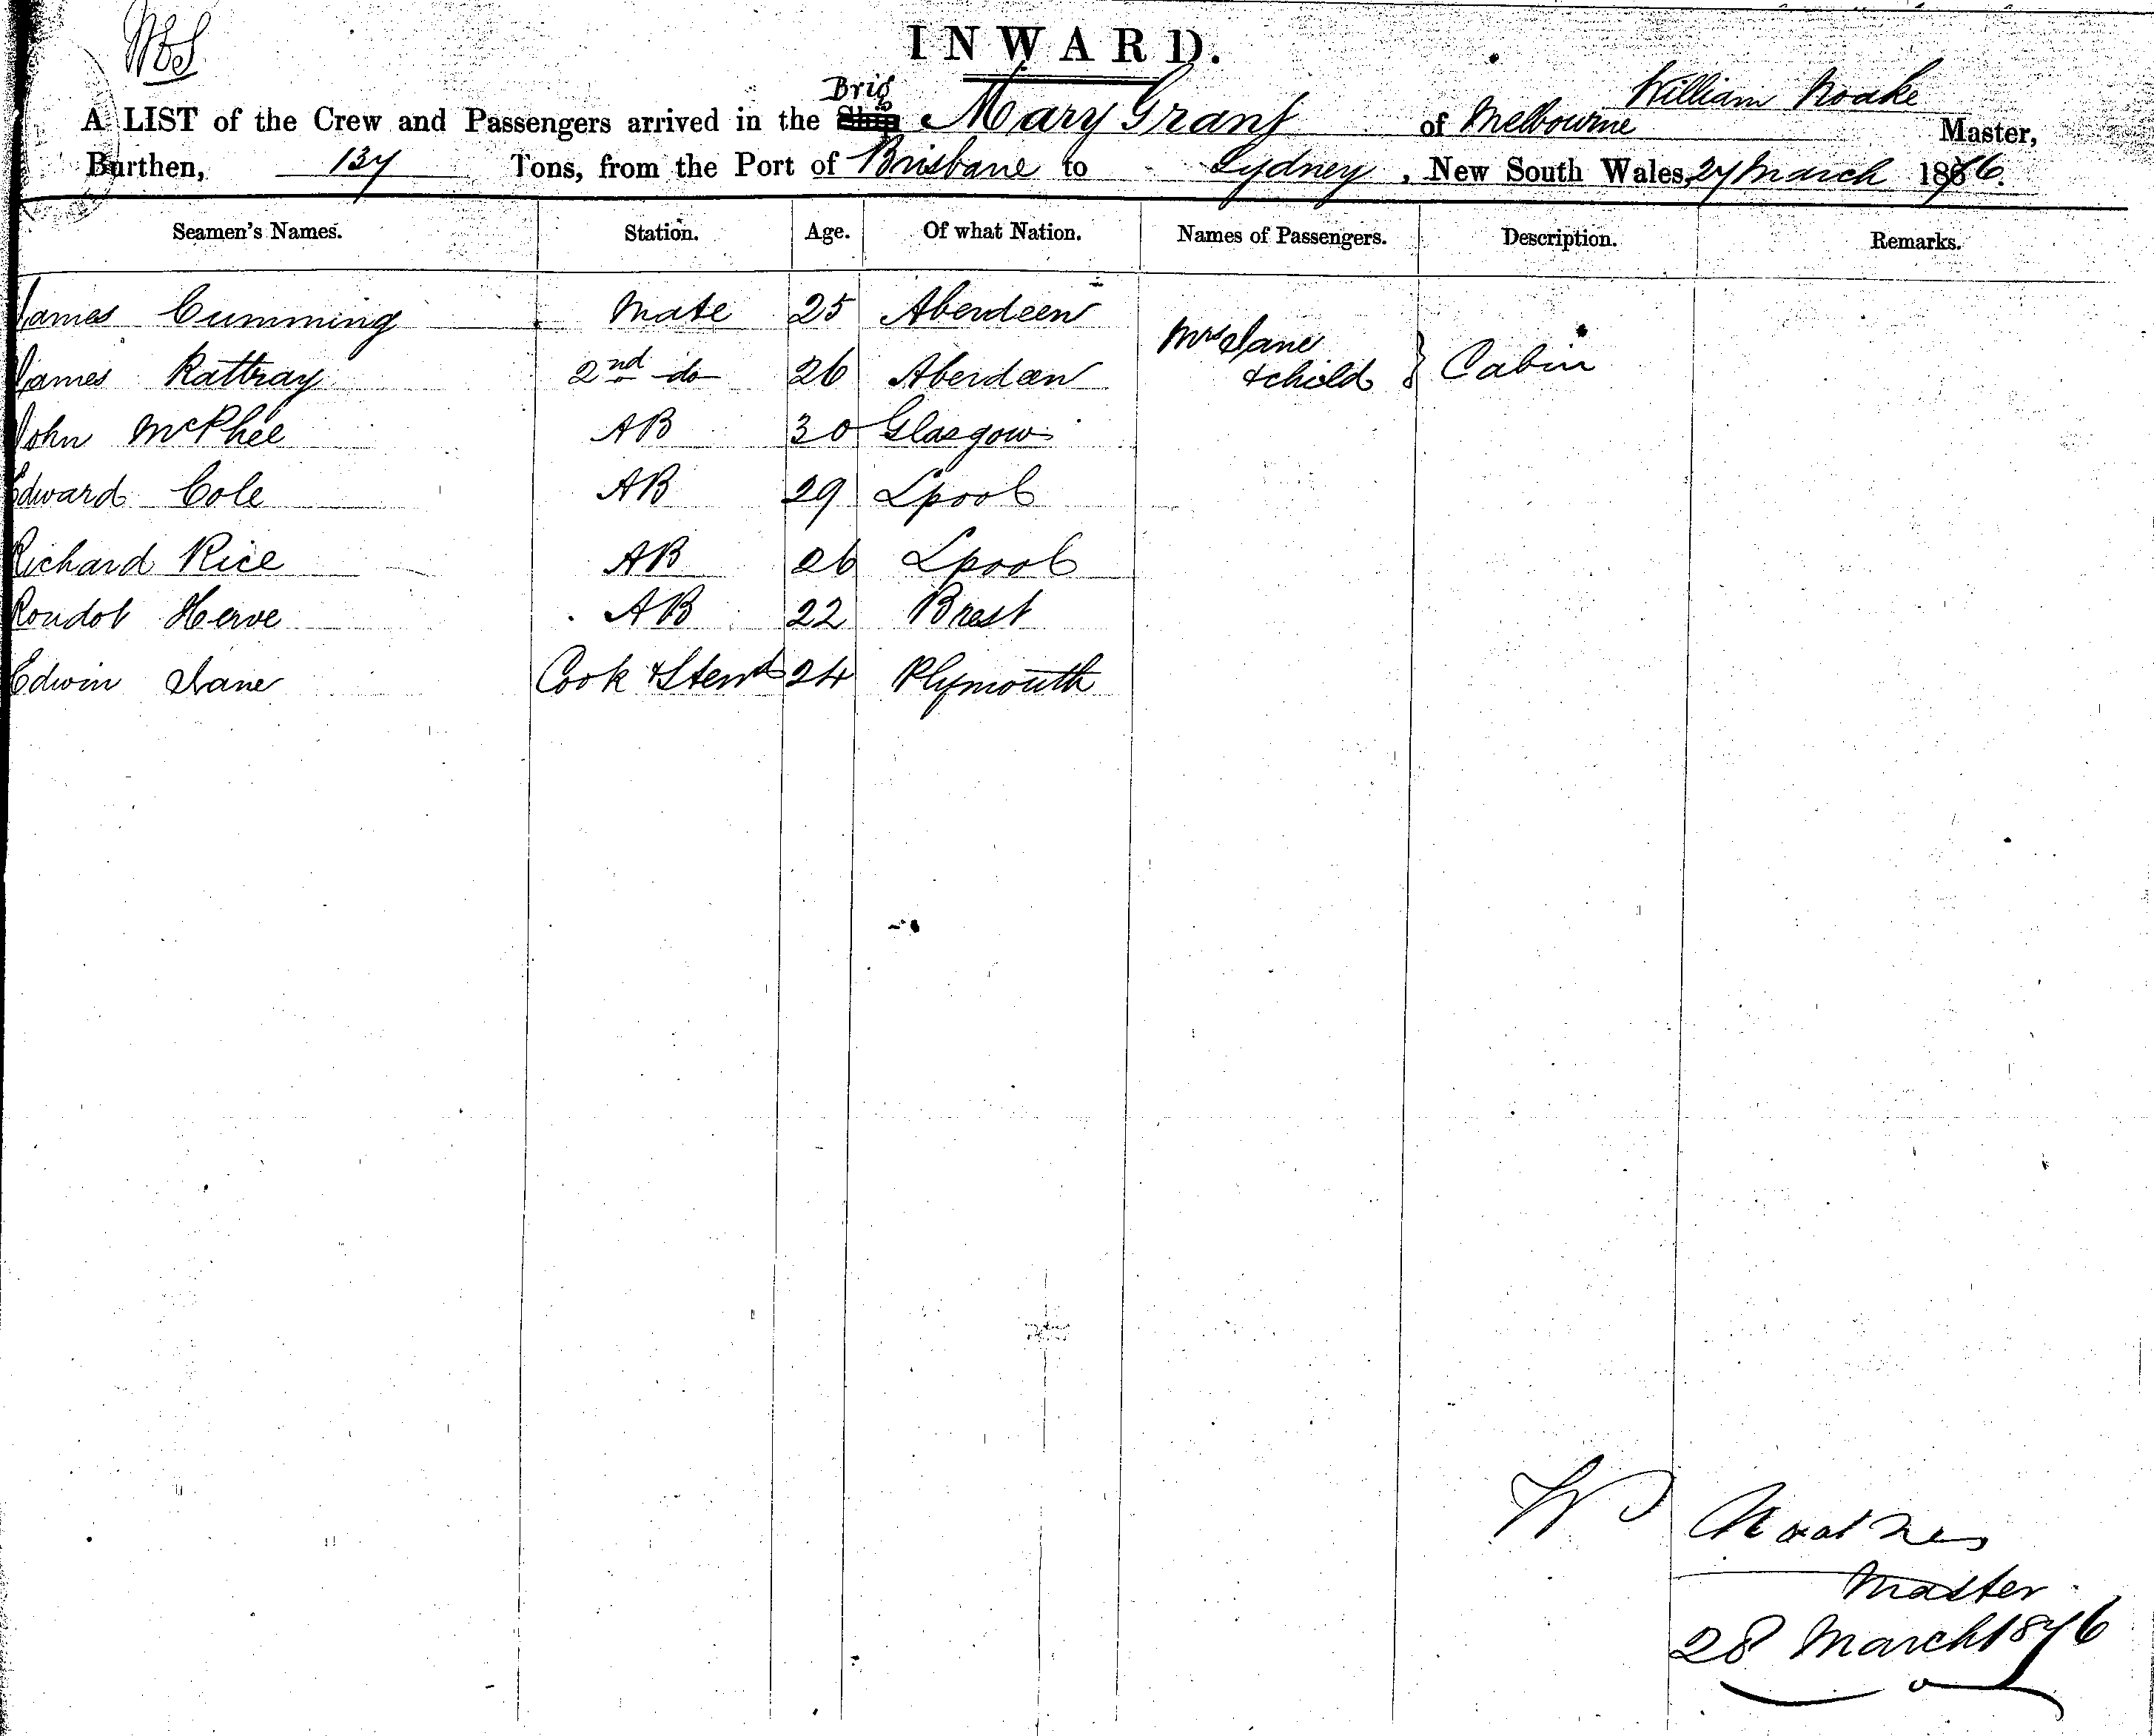 INWARD.
William Noake
Brig
A LIST of the Crew and Passengers arrived in the Ship Mary Grant of Melbourne Master,
Burthen, 137 Tons, from the Port of Brisbane to Sydney, New South Wales, 27 March 1876.
Seamen's Names. Station. Age. Of what Nation. Names of Passengers. Description. Remarks.
James Cumming Mate 25 Aberdeen
Mrs Lane
James Rattray 2nd do 26 Aberdeen & child } Cabin
John McPhee AB 30 Glasgow
Edward Cole AB 29 Lpool
Richard Rice AB 26 Lpool
Roudot Herve AB 22 Brest
Edwin Lane Cook & Stewd 24 Plymouth
W
Master
28 March 1876